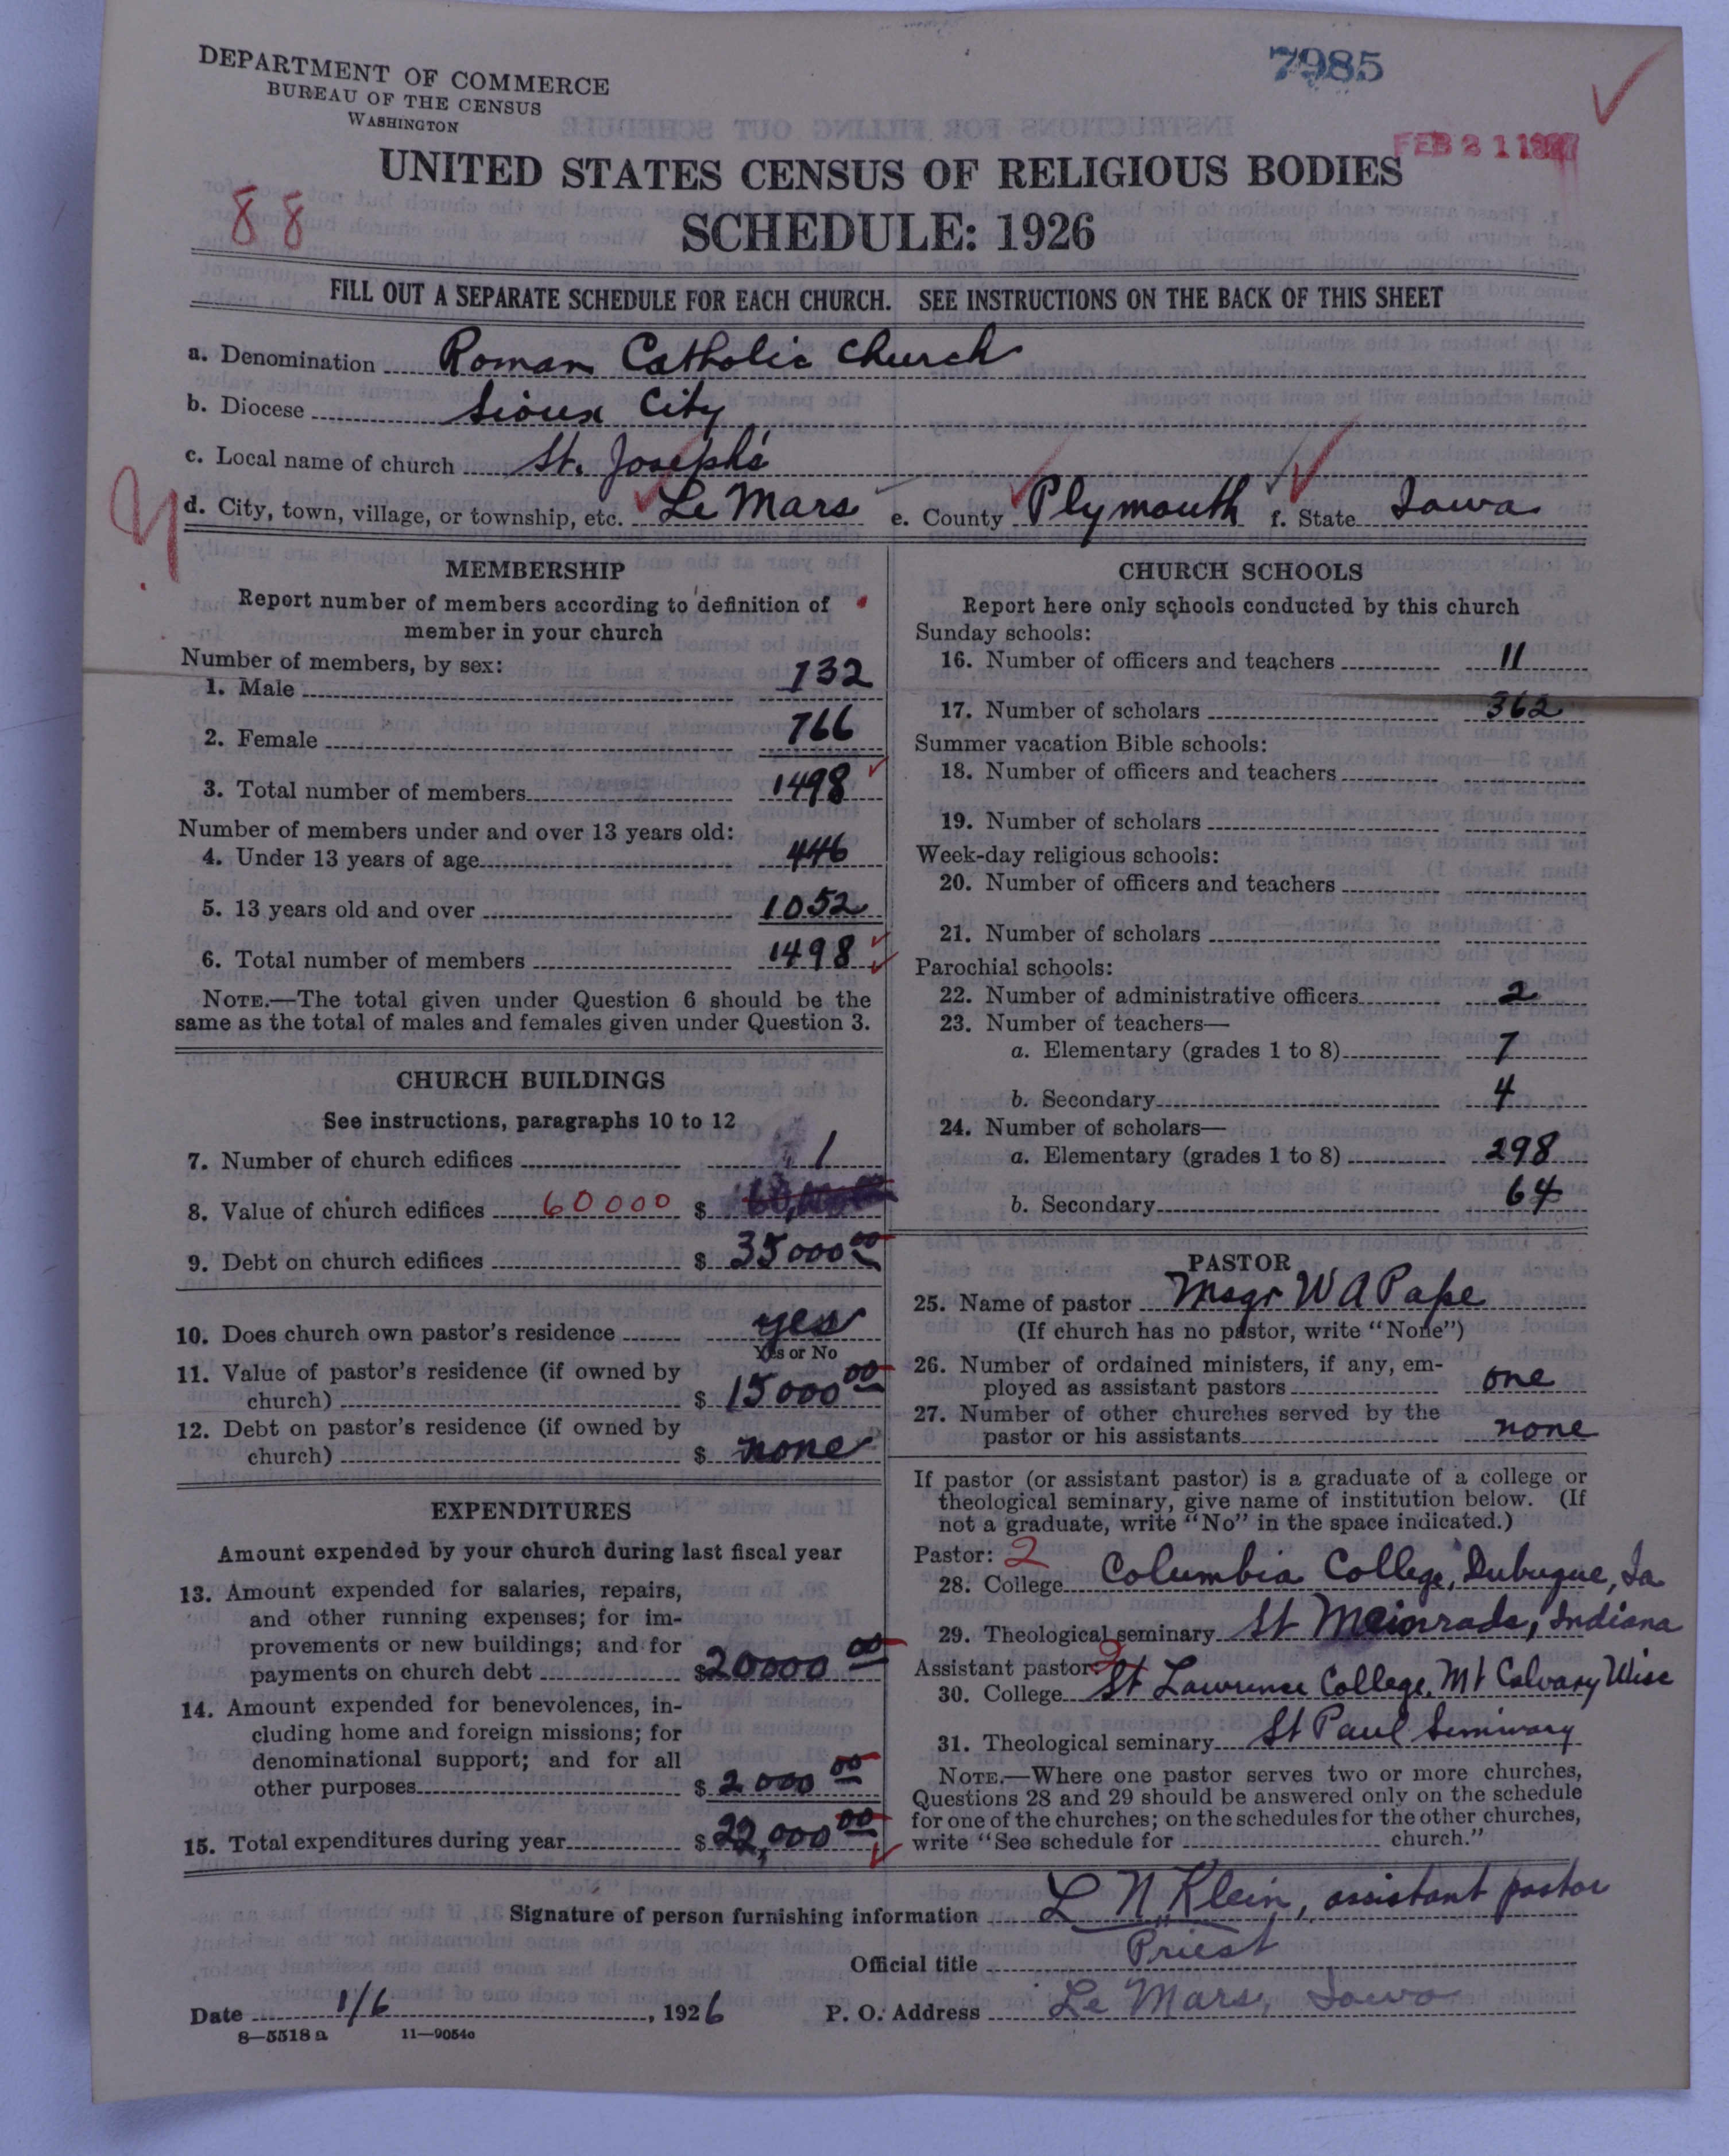 7985
DEPARTMENT OF COMMERCE
BUREAU OF THE CENSUS
WASHINGTON
FEB 21 1927
UNITED STATES CENSUS OF RELIGIOUS BODIES
88
SCHEDULE: 1926
FILL OUT A SEPARATE SCHEDULE FOR EACH CHURCH. SEE INSTRUCTIONS ON THE BACK OF THIS SHEET
a. Denomination Roman Catholic Church
b. Diocese Sioux City
c. Local name of church St. Joseph's
d. City, town, village, or township, etc. Le Mars e. County Plymouth f. State Iowa
MEMBERSHIP
Report number of members according to definition of
member in your church
Number of members, by sex:
1. Male 732
2. Female 766
3. Total number of members 1498
Number of members under and over 13 years old:
4. Under 13 years of age 446
5. 13 years old and over 1052
6. Total number of members 1498
NOTE.—The total given under Question 6 should be the
same as the total of males and females given under Question 3.
CHURCH BUILDINGS
See instructions, paragraphs 10 to 12
7. Number of church edifices 1
8. Value of church edifices 60000 $ 60,000
9. Debt on church edifices $ 35000 00
10. Does church own pastor's residence yes
Yes or No
11. Value of pastor's residence (if owned by
church) $ 15000 00
12. Debt on pastor's residence (if owned by
church) $ none
EXPENDITURES
Amount expended by your church during last fiscal year
13. Amount expended for salaries, repairs,
and other running expenses; for im-
provements or new buildings; and for
payments on church debt $ 20000 00
14. Amount expended for benevolences, in-
cluding home and foreign missions; for
denominational support; and for all
other purposes $ 2000 00
15. Total expenditures during year $ 22,000 00
CHURCH SCHOOLS
Report here only schools conducted by this church
Sunday schools:
16. Number of officers and teachers 11
17. Number of scholars 362
Summer vacation Bible schools:
18. Number of officers and teachers
19. Number of scholars
Week-day religious schools:
20. Number of officers and teachers
21. Number of scholars
Parochial schools:
22. Number of administrative officers 2
23. Number of teachers—
a. Elementary (grades 1 to 8) 7
b. Secondary 4
24. Number of scholars—
a. Elementary (grades 1 to 8) 298
b. Secondary 64
PASTOR
25. Name of pastor Msgr W A Pape
(If church has no pastor, write "None")
26. Number of ordained ministers, if any, em-
ployed as assistant pastors one
27. Number of other churches served by the
pastor or his assistants none
If pastor (or assistant pastor) is a graduate of a college or
theological seminary, give name of institution below. (If
not a graduate, write "No" in the space indicated.)
Pastor: 2
28. College Columbia College, Dubuque, Ia
29. Theological seminary St Meinrads, Indiana
Assistant pastor: 2
30. College St Lawrence College, Mt Calvary Wisc
31. Theological seminary St Paul Seminary
NOTE.—Where one pastor serves two or more churches,
Questions 28 and 29 should be answered only on the schedule
for one of the churches; on the schedules for the other churches,
write "See schedule for church."
Signature of person furnishing information L N Klein, assistant pastor
Official title Priest
Date 1/6, 1926 P. O. Address Le Mars, Iowa
8—5518a 11—9054c